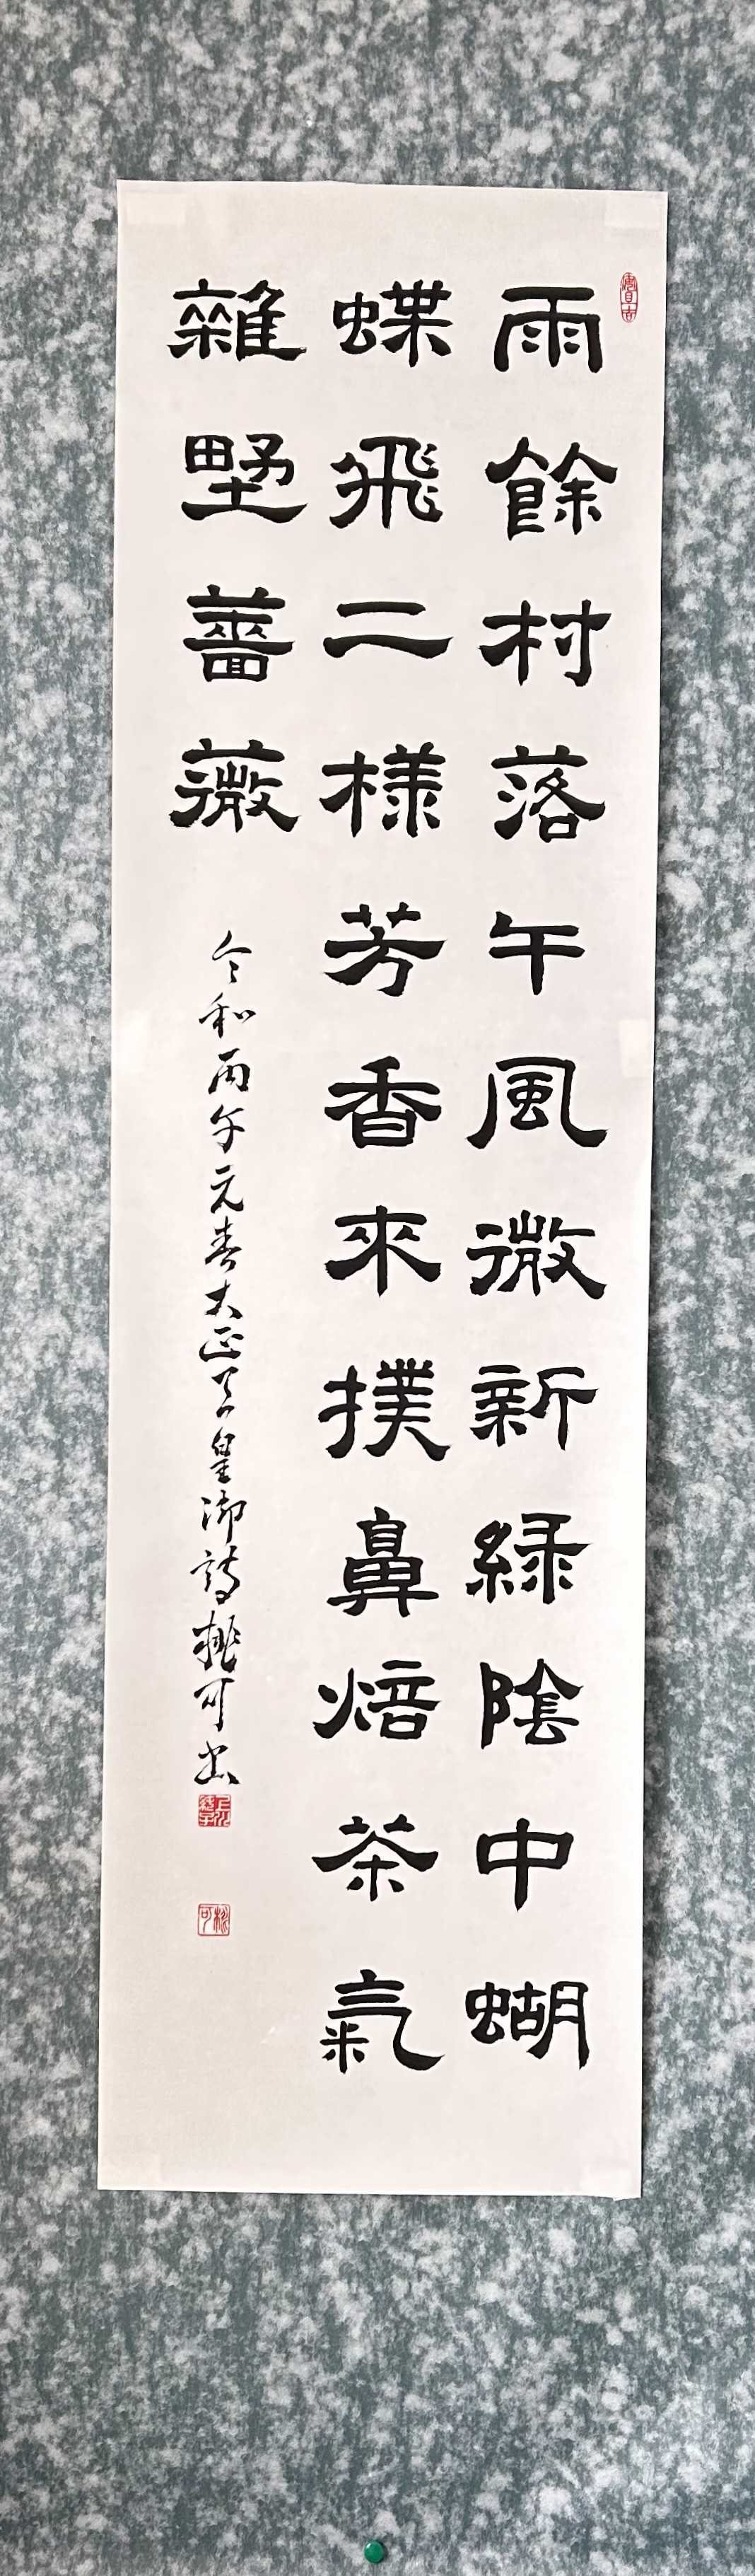 雨餘村落午風微新緑陰中蝴
蝶飛二様芳香來撲鼻焙茶氣
雜墅薔薇
令和丙午元春大正天皇御詩桃可書
桃可